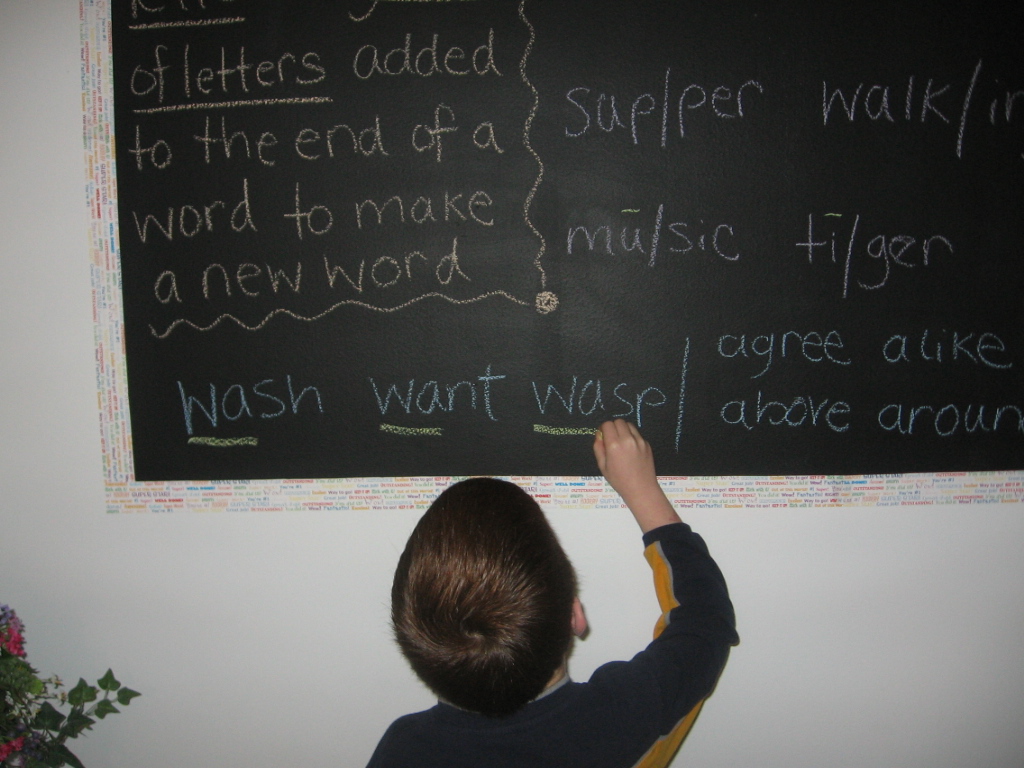 of letters added
to the end of a
word to make
a new word
sup/per walk/in
mū/sic tī/ger
wash want wasp/
agree alike
above aroun